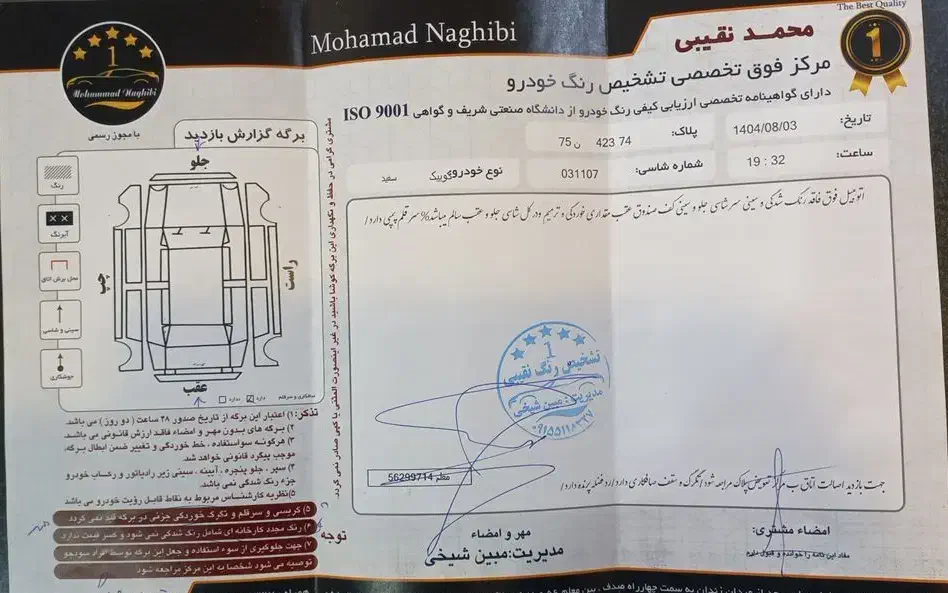 The Best Quality
Mohamad Naghibi
محمـد نقیبی
1
1
Mohammad Naghibi
با مجوز رسمی
مرکز فوق تخصصی تشخیص رنگ خودرو
دارای گواهینامه تخصصی ارزیابی کیفی رنگ خودرو از دانشگاه صنعتی شریف و گواهی ISO 9001
تاریخ: 1404/08/03
پلاک: 74 423 ن 75
ساعت: 32 : 19
شماره شاسی: 031107
نوع خودرو: کوییک سفید
برگه گزارش بازدید
جلو
چپ
راست
عقب
رنگ
آبرنگ
محل برش اتاق
سینی و شاسی
جوشکاری
صافکاری و سرقلم دارد ندارد
مشتری گرامی در حفظ و نگهداری این برگه کوشا باشید در غیر اینصورت المثنی یا کپی صادر نمی گردد
اتومبیل فوق فاقد رنگ شدگی و سینی سرشاسی جلو و سینی کف صندوق عقب مقداری خوردگی و ترمیم ودر کل شاسی جلو و عقب سالم میباشد% سر قلم پمپی دارد/
1
تشخیص رنگ نقیبی
مدیریت: مبین شیخی
جهت بازدید اصالت اتاق ب مرکز تعویض پلاک مراجعه شود/تگرگ و سقف صافکاری دارد/
معلم 56299714
تذکر: ۱) اعتبار این برگه از تاریخ صدور ۴۸ ساعت ( دو روز ) می باشد.
۲) برگه های بدون مهر و امضاء فاقد ارزش قانونی می باشد.
۳) هرگونه سواستفاده ، خط خوردگی و تغییر ضمن ابطال برگه،
موجب پیگرد قانونی خواهد شد.
۴) سپر ، جلو پنجره ، آیینه ، سینی زیر رادیاتور و رکاب خودرو
جزء رنگ شدگی نمی باشد.
۵) نظریه کارشناس مربوط به نقاط قابل رؤیت خودرو می باشد
۵) کریسی و سرقلم و تگرگ خوردگی جزئی در برگه قید نمی گردد
۶) رنگ مجدد کارخانه ای شامل رنگ شدگی نمی شود و کسر قیمت ندارد
۷) جهت جلوگیری از سوء استفاده و جعل این برگه توسط افراد سودجو
توصیه می شود شخصا به این مرکز مراجعه شود
توجه
مهر و امضاء
مدیریت: مبین شیخی
امضاء مشتری:
مفاد این نامه را خوانده و قبول دارم